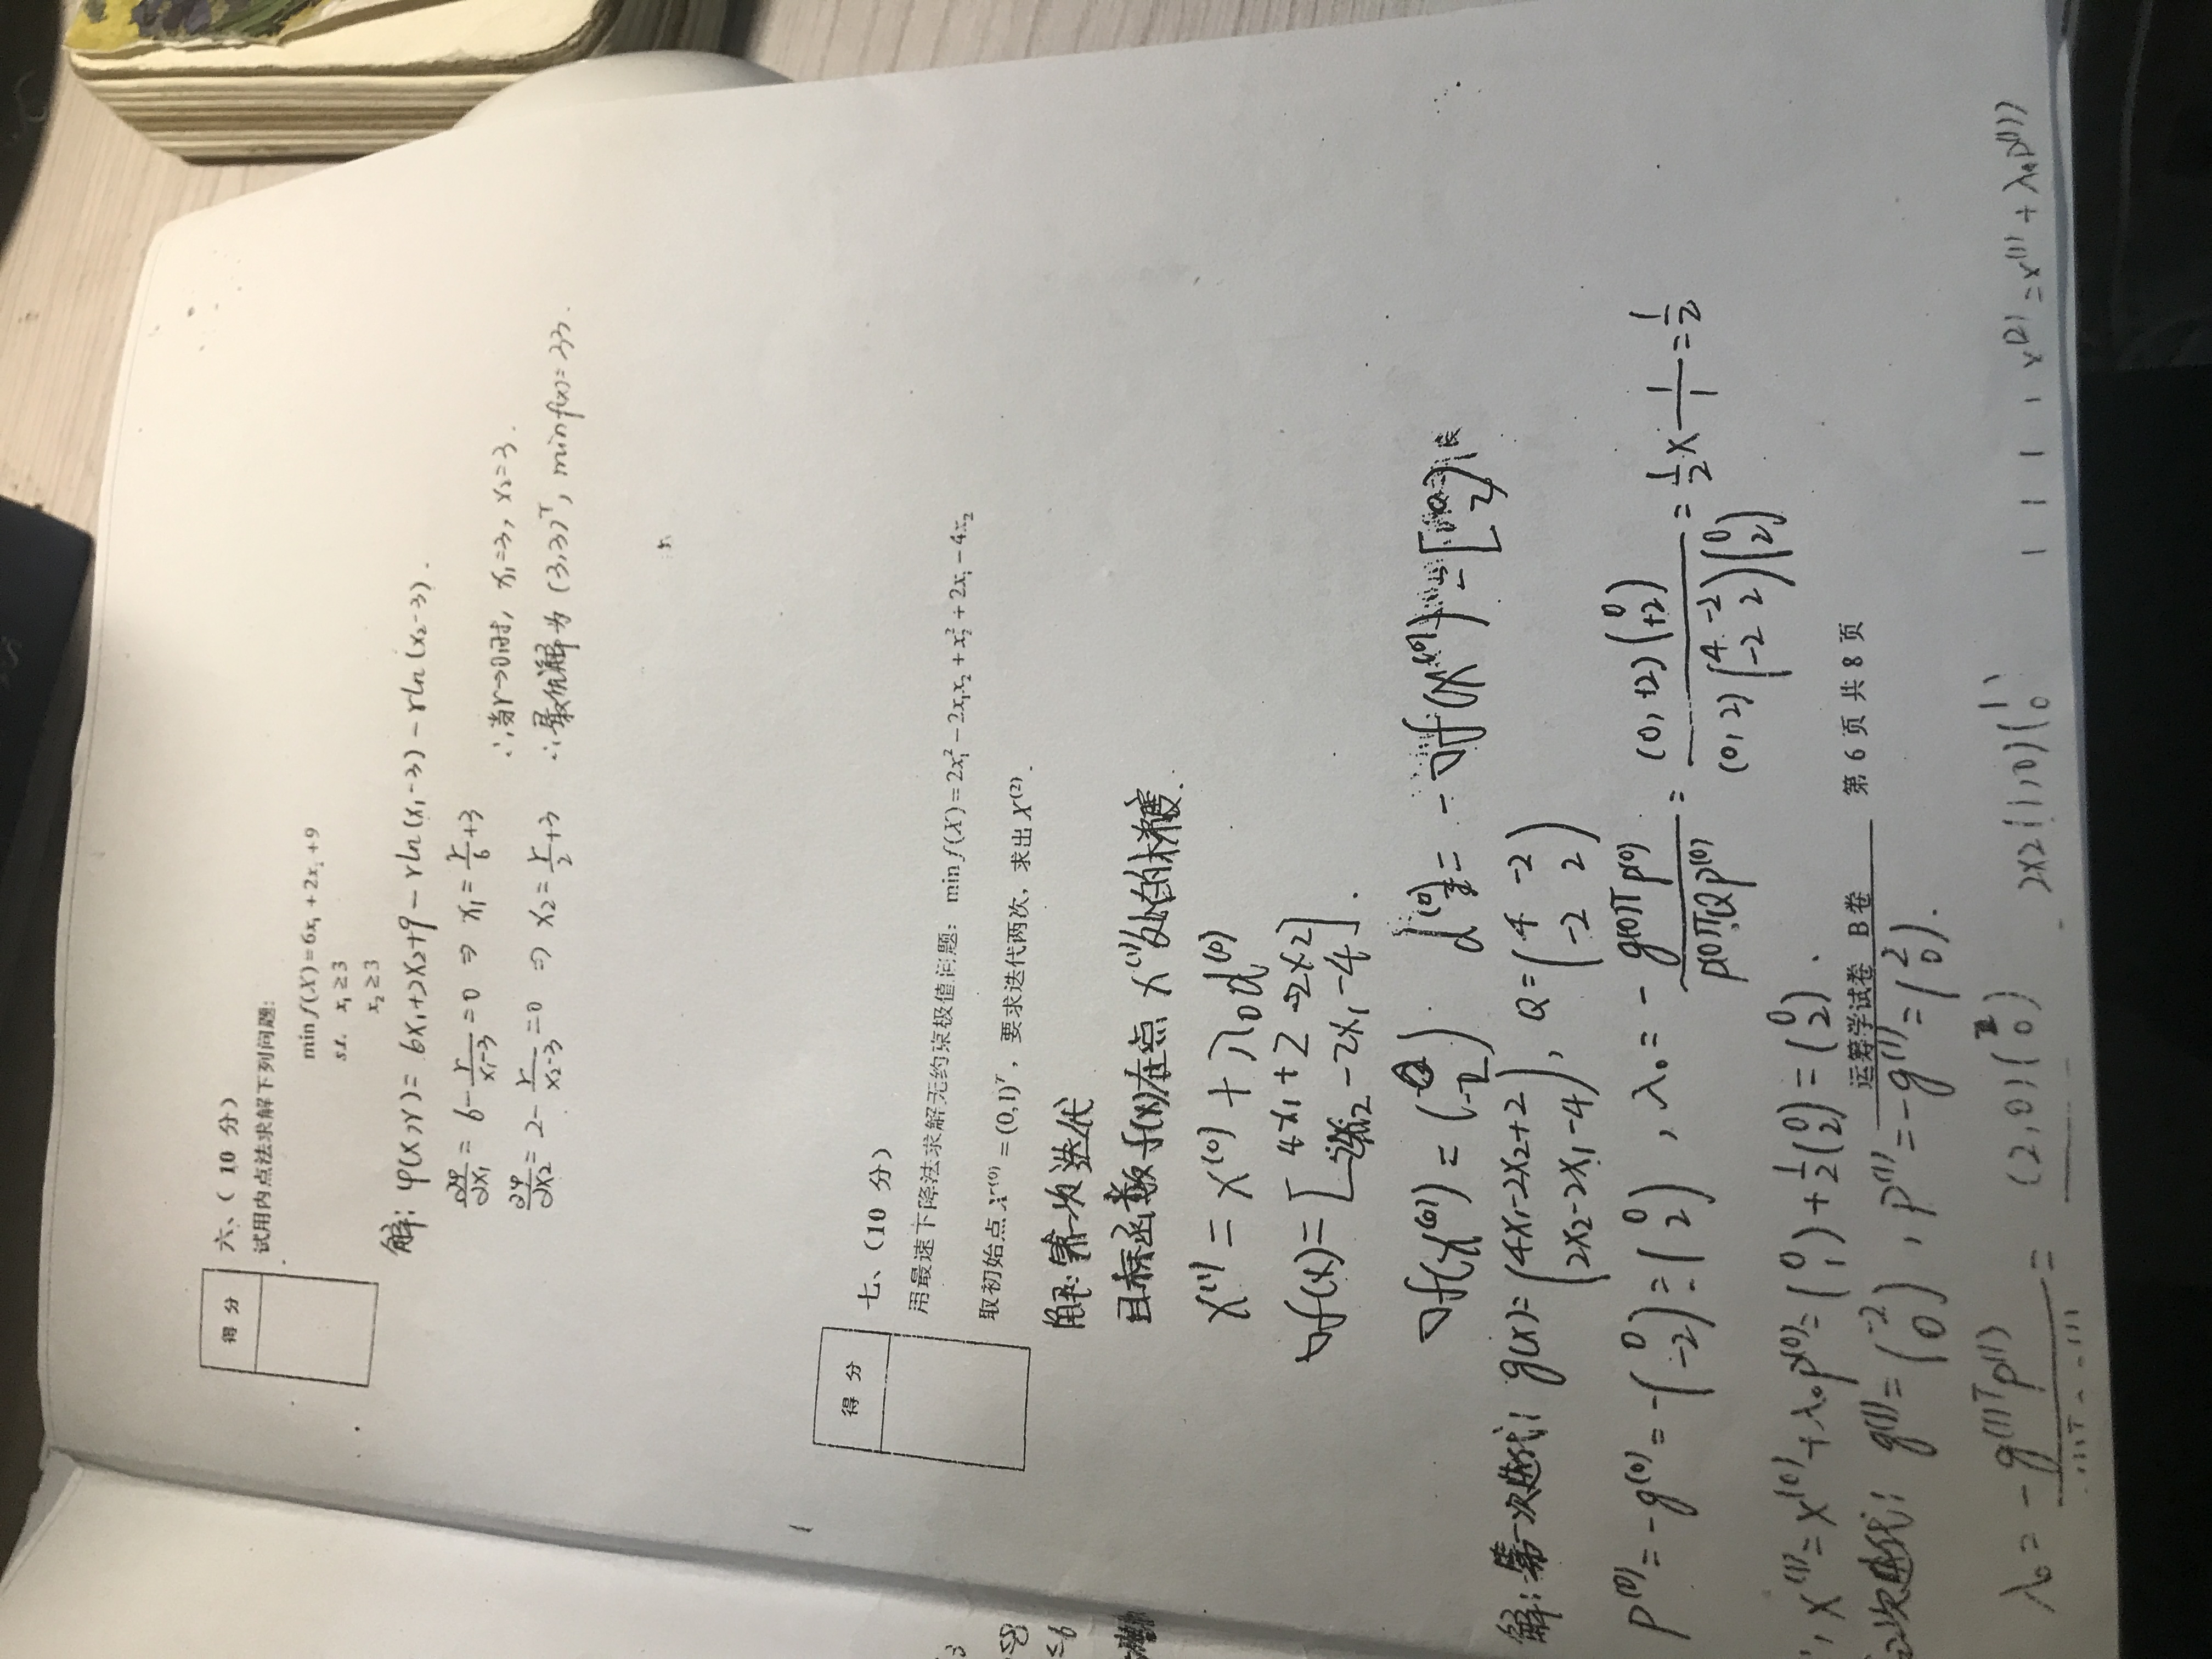 得 分
六、( 10 分)
试用内点法求解下列问题:
min f(X)=6x₁+2x₂+9
s.t. x₁≥3
x₂≥3
解: φ(x,r)= 6x₁+2x₂+9-rln(x₁-3)-rln(x₂-3).
∂φ/∂x₁ = 6- r/(x₁-3) =0 ⇒ x₁= r/6 +3
∴当r→0时, x₁=3, x₂=3.
∂φ/∂x₂ = 2- r/(x₂-3) =0 ⇒ x₂= r/2 +3
∴最优解为 (3,3)ᵀ, minf(x)=33.
得 分
七、(10 分)
用最速下降法求解无约束极值问题: min f(X)=2x₁²-2x₁x₂+x₂²+2x₁-4x₂
取初始点 X⁽⁰⁾=(0,1)ᵀ, 要求迭代两次, 求出 X⁽²⁾.
3
≤8
≤6
解: 第一次迭代
目标函数 f(x)在点 x⁽¹⁾处的梯度.
x⁽¹⁾ = x⁽⁰⁾ + λ₀d⁽⁰⁾
∇f(x)= [4x₁+2-2x₂
2x₂-2x₁-4].
∇f(x⁽⁰⁾) = (0 -2) d⁽⁰⁾ = -∇f(x⁽⁰⁾) = [0 2)
解: 第一次迭代: g(x)= (4x₁-2x₂+2 2x₂-2x₁-4), Q= (4 -2 -2 2)
p⁽⁰⁾= -g⁽⁰⁾= -(0 -2)= (0 2), λ₀= - g⁽⁰⁾ᵀp⁽⁰⁾ / p⁽⁰⁾ᵀQp⁽⁰⁾ = (0,+2)(0 +2) / (0,2)(4 -2 -2 2)(0 2) = 1/2 × 1/1 = 1/2
, x⁽¹⁾= x⁽⁰⁾+λ₀p⁽⁰⁾= (0 1)+ 1/2 (0 2) = (0 2).
运筹学试卷 B卷 第 6 页 共 8 页
次迭代: g⁽¹⁾= (-2 0), p⁽¹⁾= -g⁽¹⁾= (2 0).
λ₀ = -g⁽¹⁾ᵀp⁽¹⁾ = (2,0)(2 0) 2×2(1,0)(1 0) x⁽²⁾=x⁽¹⁾+λ₀p⁽¹⁾